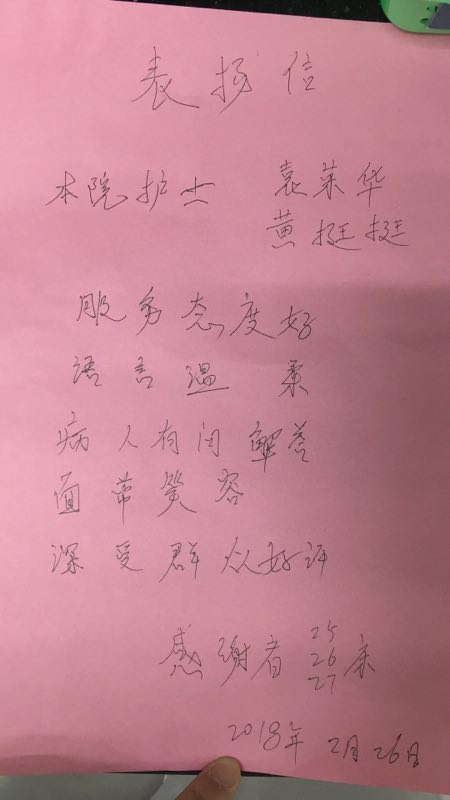 表扬信
本院护士 袁荣华
黄挺挺
服务态度好
语言温柔
病人有问解答
面带笑容
深受群众好评
感谢者 25 26 27 床
2018年2月26日